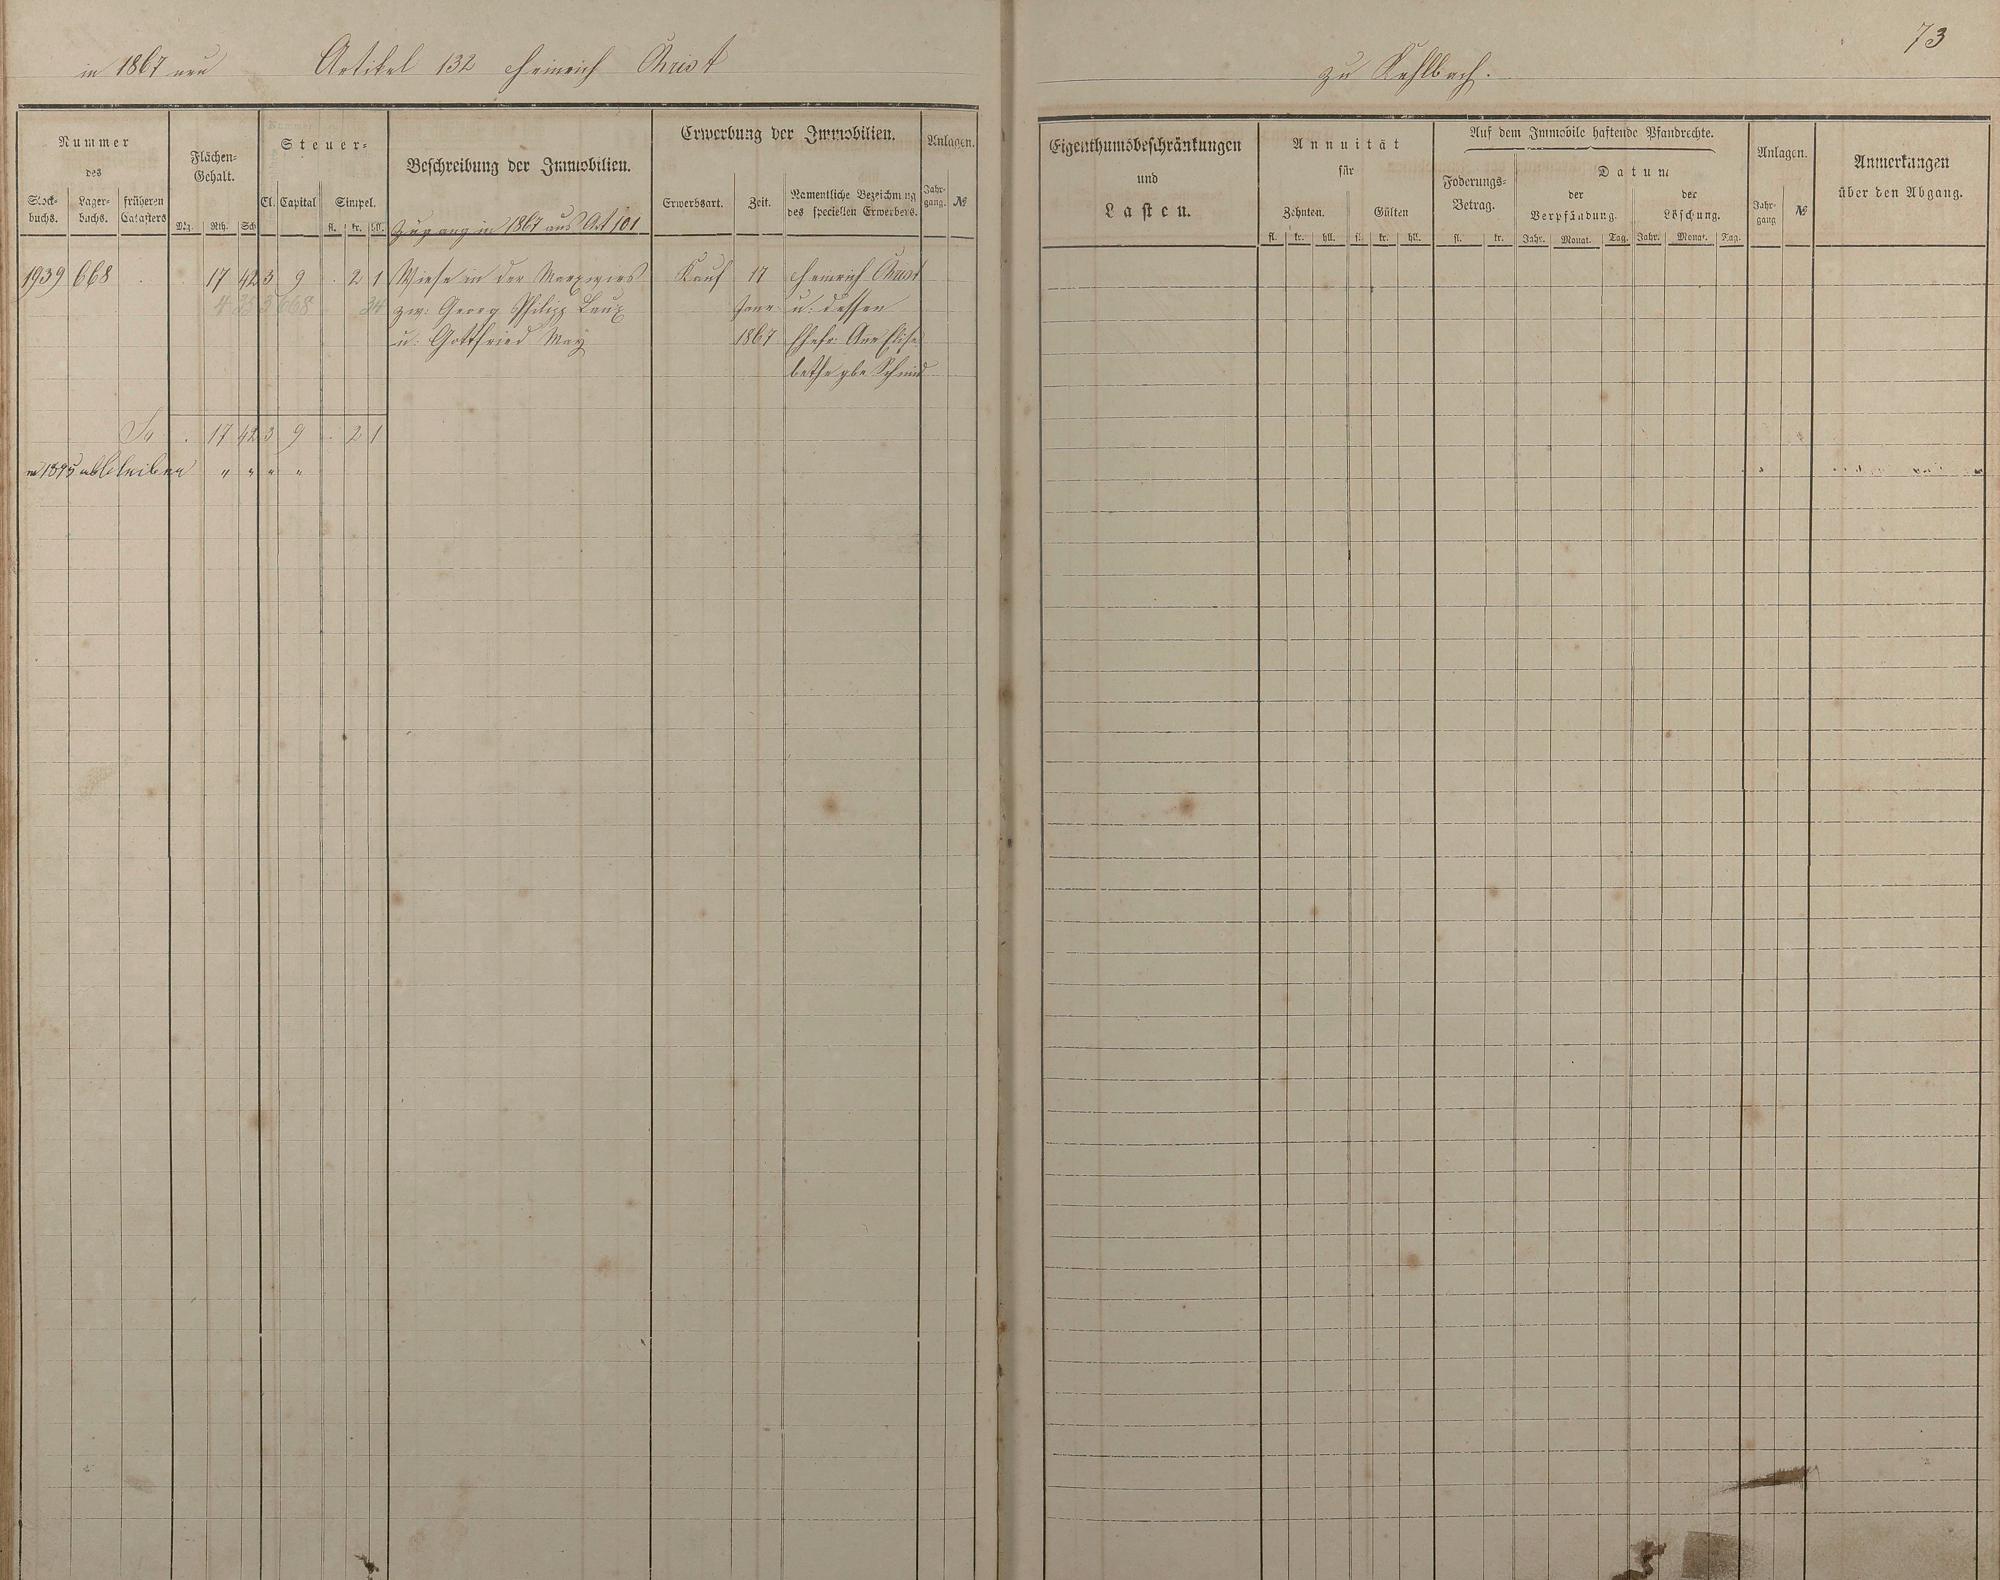 73
in 1867 neu Artikel 132 Heinrich Christ zu Kehlbach.
Nummer
des
Stock-
buchs.
Lager-
buchs.
früheren
Catasters
Flächen-
Gehalt.
Mg. Rth. Sch
Steuer-
Cl. Capital Simpel.
fl. kr. hll.
Beschreibung der Immobilien.
Zugang in 1867 aus Art 101
Erwerbung der Immobilien.
Erwerbsart. Zeit.
Namentliche Bezeichnung
des speciellen Erwerbers.
Anlagen.
Jahr-
gang. №
Eigenthumsbeschränkungen
und
Lasten.
Annuität
für
Zehnten. Gülten
fl. kr. hll. fl. kr. hll.
Auf dem Immobile haftende Pfandrechte.
Foderungs-
Betrag.
fl. kr.
Datum
der
Verpfändung.
Jahr. Monat. Tag.
der
Löschung.
Jahr. Monat. Tag.
Anlagen.
Jahr-
gang №
Anmerkungen
über den Abgang.
1939 668 17 42 3 9 . 2 1 Wiese in der Marxwies Kauf 17 Heinrich Christ
4 35 3 668 34 zw: Georg Philipp Laux Janr u: dessen
u: Gottfried May 1867 Ehefr: Ann Elisa
bethe gbe Schmid
Sa . 17 42 3 9 . 2 1
in 1895 abbleiben " " " "